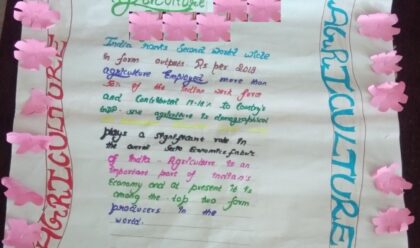 Agriculture
AGRICULTURE
India ranks Second World Wide
in form outputs As per 2018
agriculture Employed more than
50% of the Indian work force
and Contributed 17-18% to Country's
GDP
agriculture is demographical
plays a significance role in
the overall Socio Economics fabric
of India. Agriculture is an
important part of Indian's
Economy and at present it is
among the top two form
producers in the
world.
AGRICULTURE